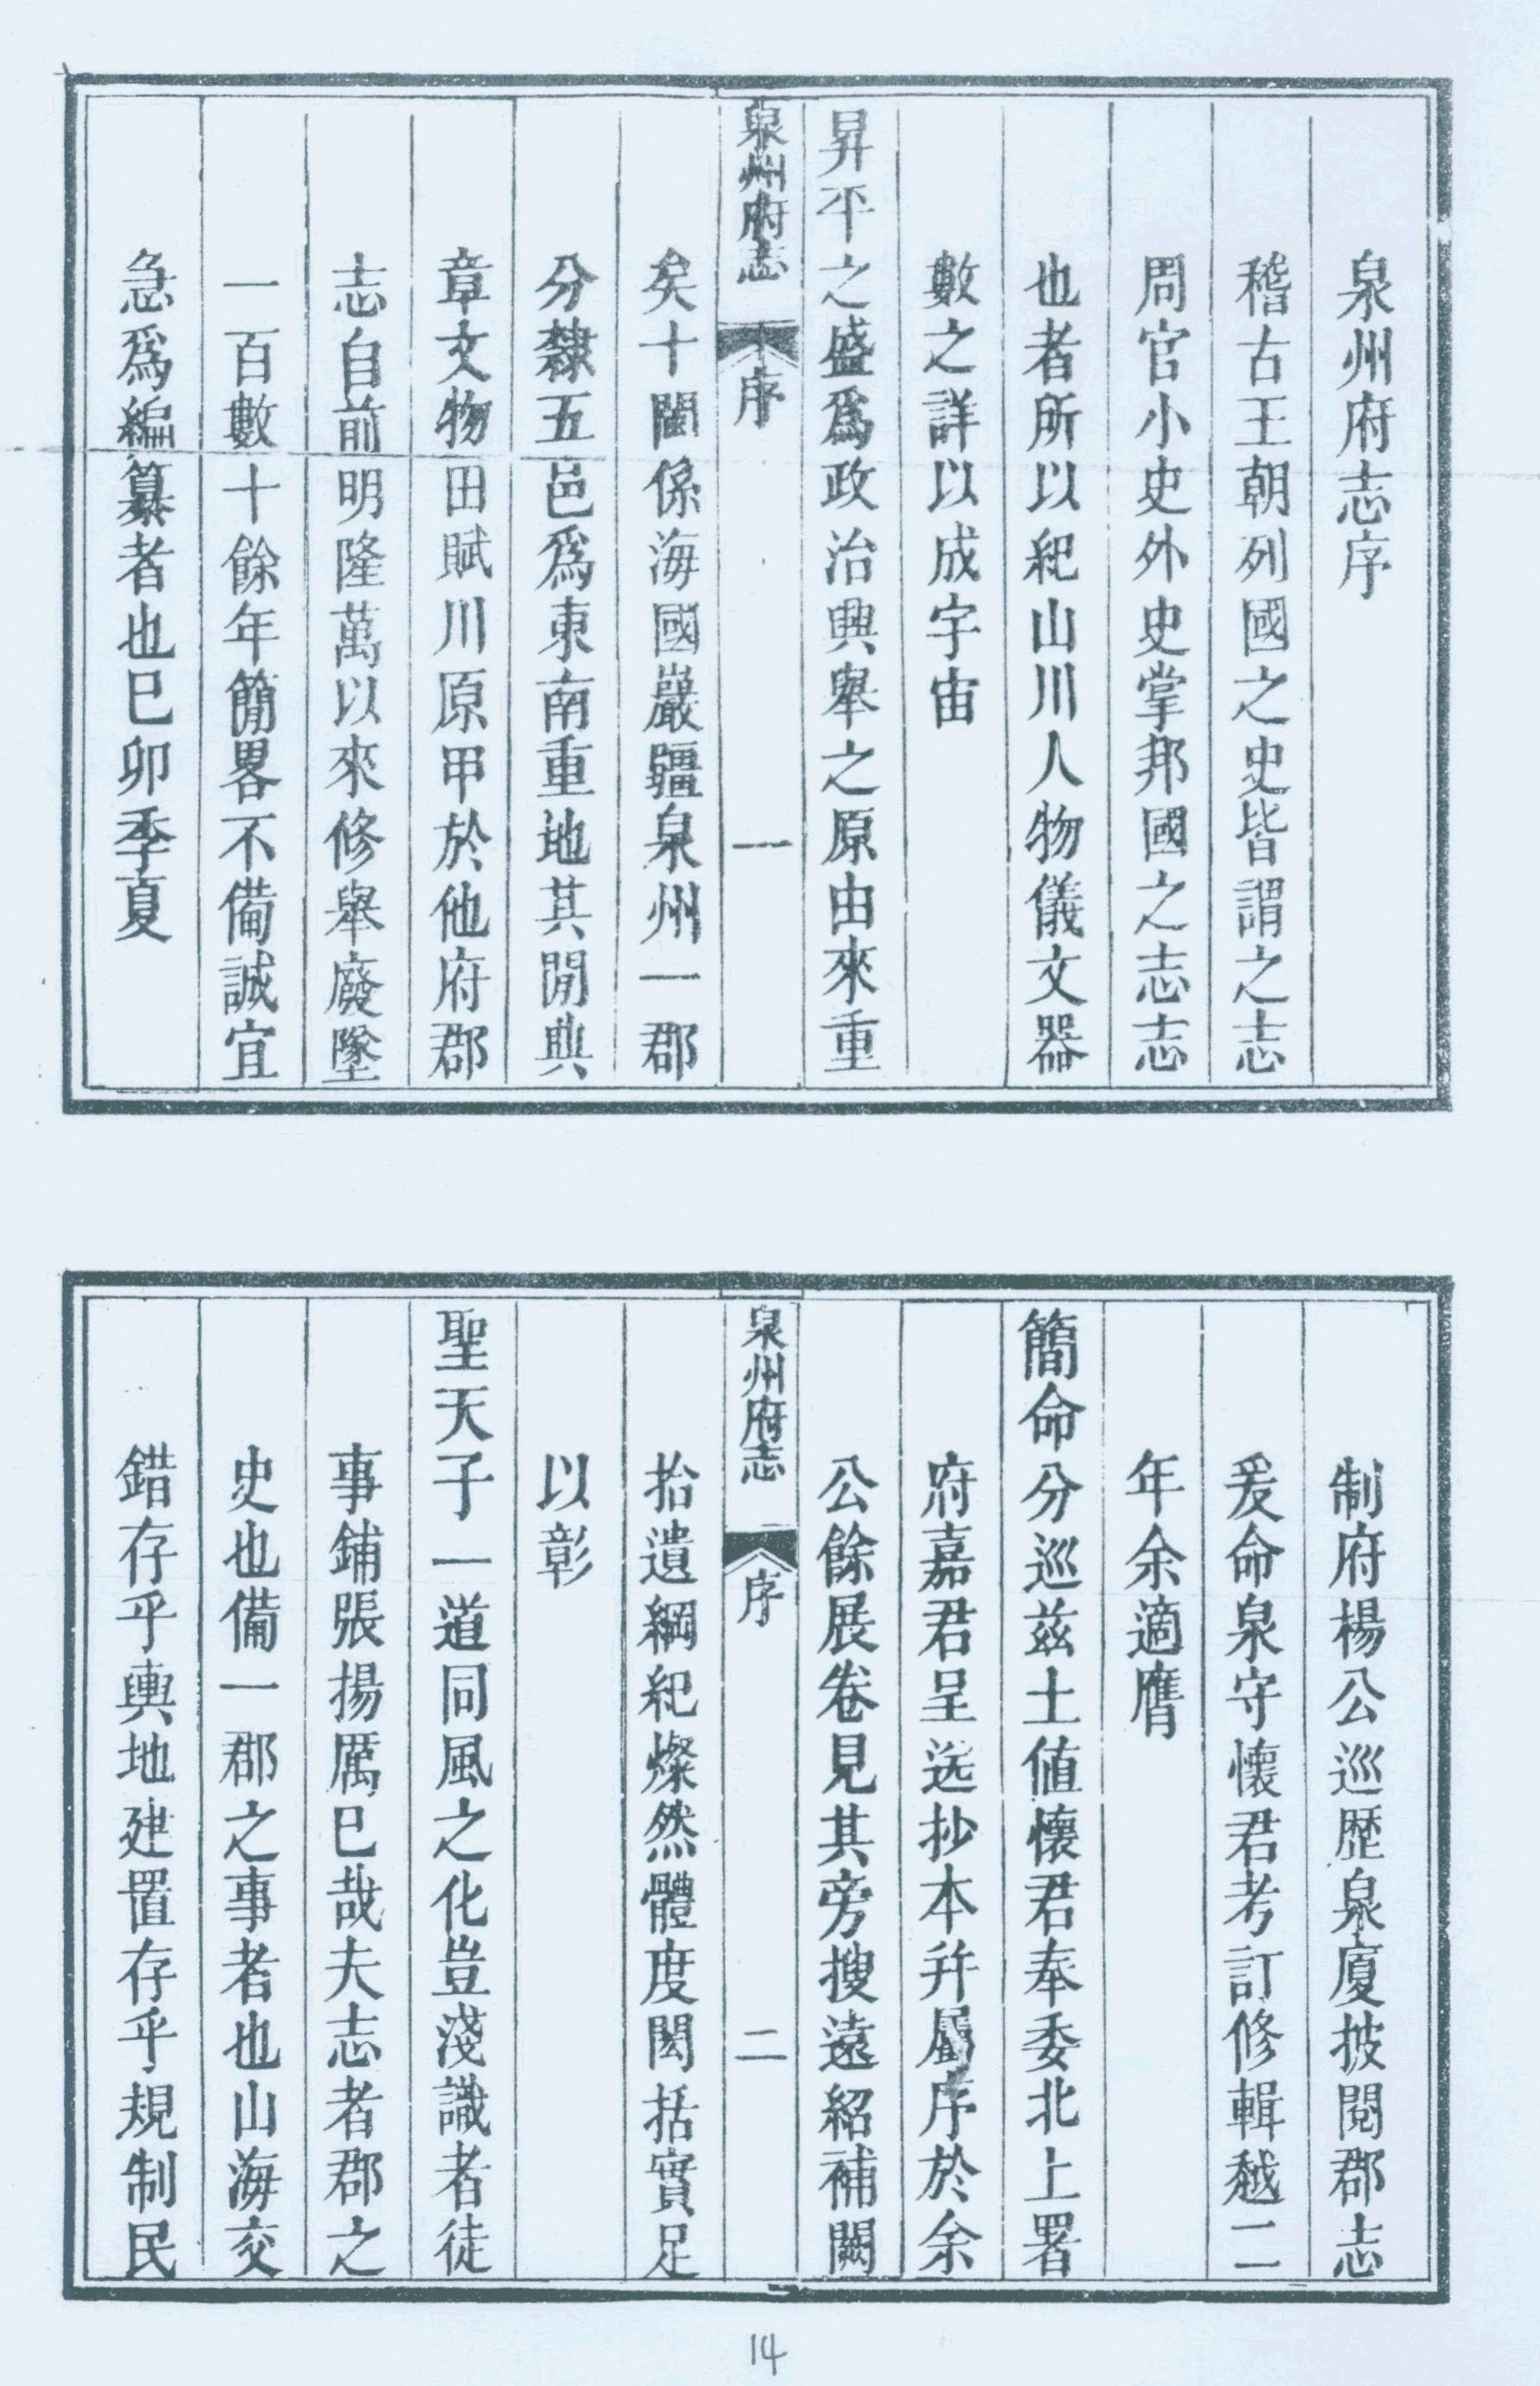 泉州府志序
稽古王朝列國之史皆謂之志
周官小史外史掌邦國之志志
也者所以紀山川人物儀文器
數之詳以成宇宙
昇平之盛爲政治興舉之原由來重
泉州府志 序 一
矣十閩係海國巖疆泉州一郡
分隸五邑爲東南重地其間典
章文物田賦川原甲於他府郡
志自前明隆萬以來修舉廢墜
一百數十餘年簡畧不備誠宜
急爲編纂者也已卯季夏
制府楊公巡歷泉廈披閱郡志
爰命泉守懷君考訂修輯越二
年余適膺
簡命分巡茲土值懷君奉委北上署
府嘉君呈送抄本幷屬序於余
公餘展卷見其旁搜遠紹補闕
泉州府志 序 二
拾遺綱紀燦然體度閎括實足
以彰
聖天子一道同風之化豈淺識者徒
事鋪張揚厲已哉夫志者郡之
史也備一郡之事者也山海交
錯存乎輿地建置存乎規制民
14